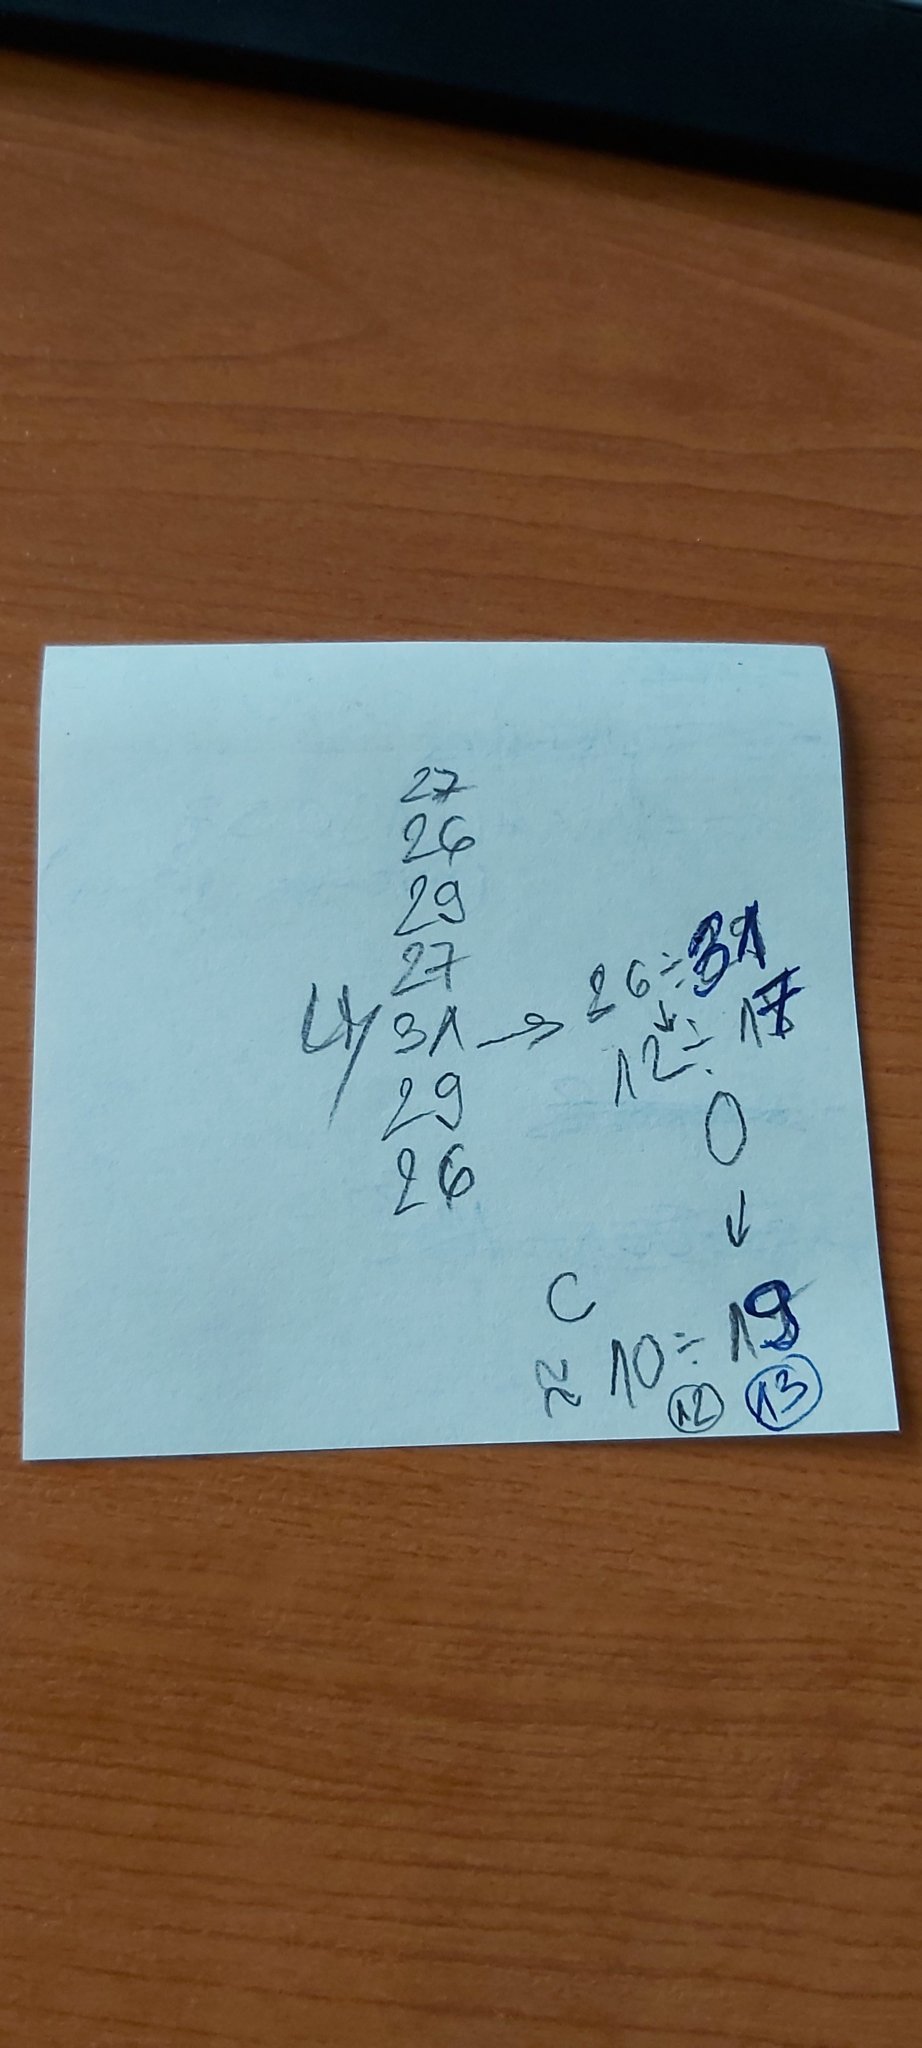 27
26
29
27
31 → 26÷31
↓
29
12÷17
26
0
↓
C
≈ 10÷19
12 13